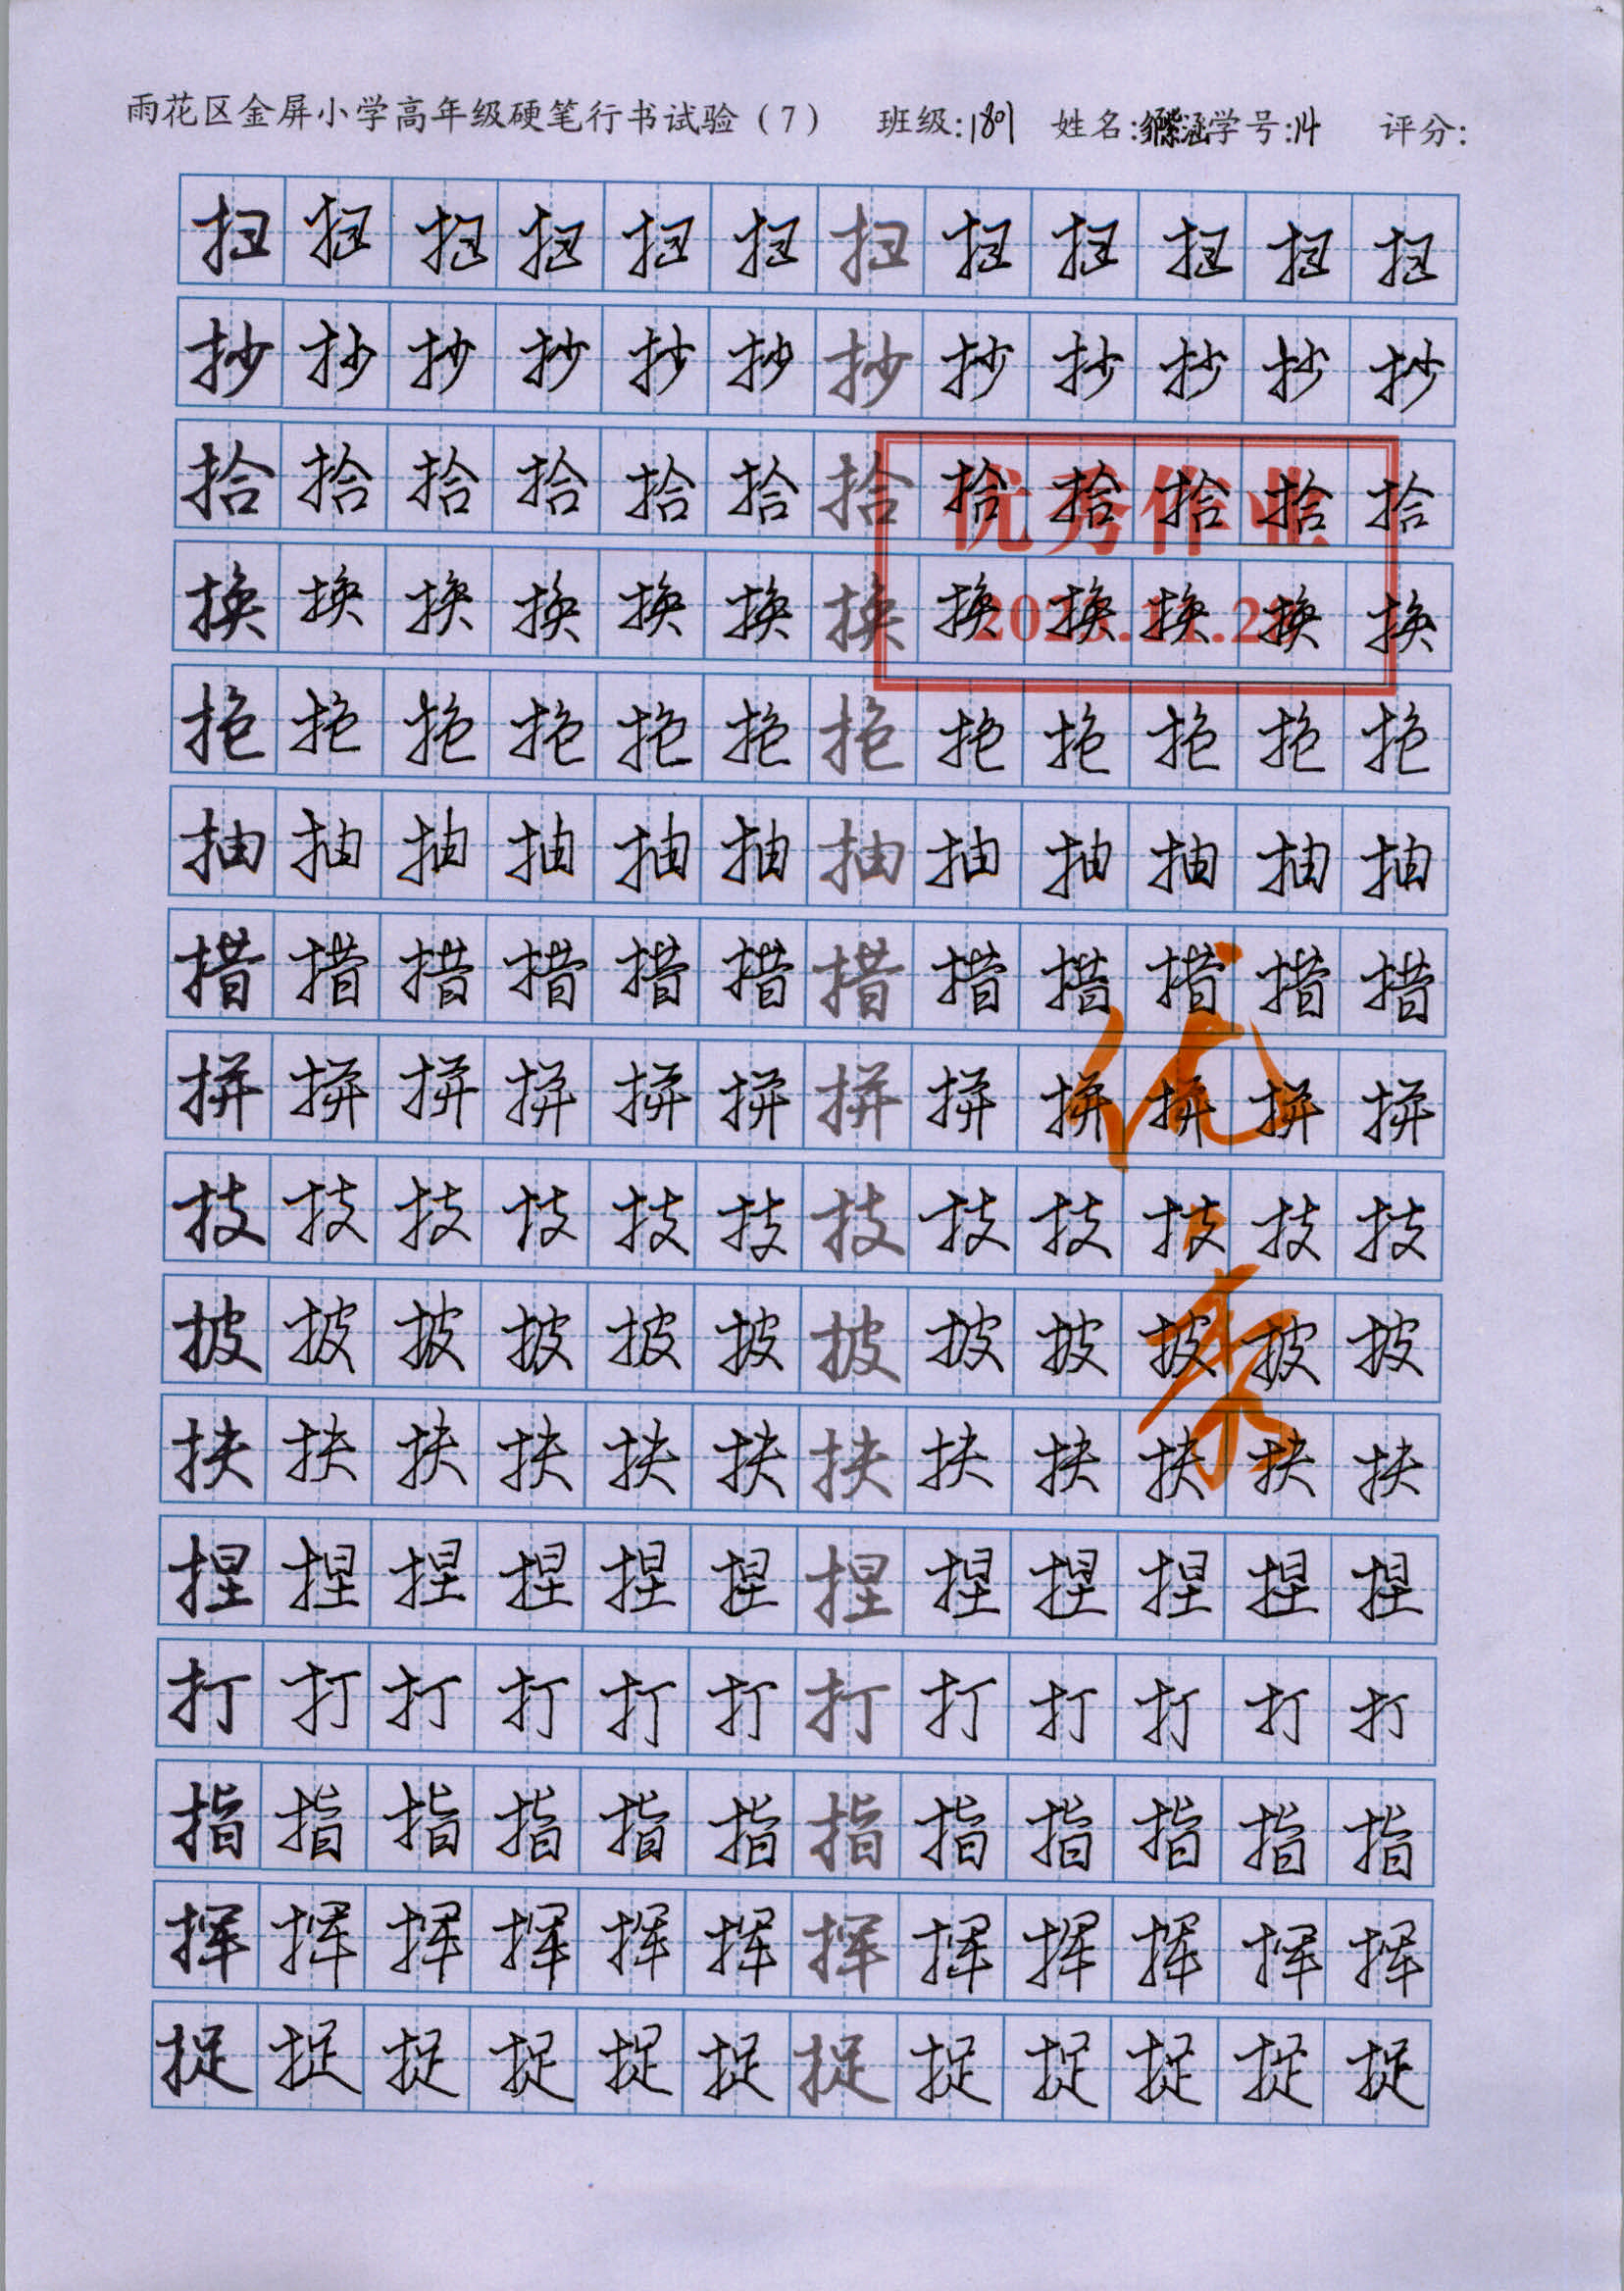 雨花区金屏小学高年级硬笔行书试验（7） 班级:1801 姓名:紫涵 学号:14 评分:
扫 扫 扫 扫 扫 扫 扫 扫 扫 扫 扫 扫
抄 抄 抄 抄 抄 抄 抄 抄 抄 抄 抄 抄
拾 拾 拾 拾 拾 拾 拾 拾 拾 拾 拾 拾
优秀作业
换 换 换 换 换 换 换 换 换 换 换 换
拖 拖 拖 拖 拖 拖 拖 拖 拖 拖 拖 拖
抽 抽 抽 抽 抽 抽 抽 抽 抽 抽 抽 抽
措 措 措 措 措 措 措 措 措 措 措 措
拼 拼 拼 拼 拼 拼 拼 拼 拼 拼 拼 拼
优秀
技 技 技 技 技 技 技 技 技 技 技 技
披 披 披 披 披 披 披 披 披 披 披 披
扶 扶 扶 扶 扶 扶 扶 扶 扶 扶 扶 扶
捏 捏 捏 捏 捏 捏 捏 捏 捏 捏 捏 捏
打 打 打 打 打 打 打 打 打 打 打 打
指 指 指 指 指 指 指 指 指 指 指 指
挥 挥 挥 挥 挥 挥 挥 挥 挥 挥 挥 挥
捉 捉 捉 捉 捉 捉 捉 捉 捉 捉 捉 捉